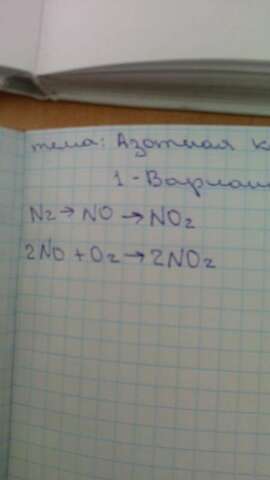 тема: Азотная к
1-Вариан
N₂ → NO → NO₂
2NO + O₂ → 2NO₂